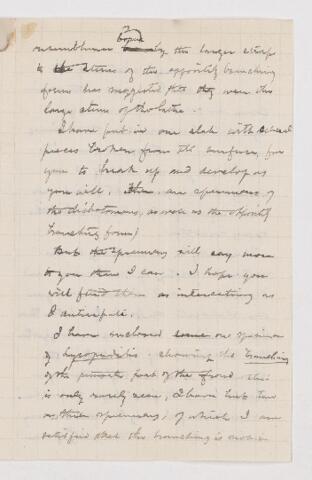 resemblance by the larger straps
to the stems of this oppositely branching
form has suggested that they were the
large stems of the latter.
I have put in one slab with several
pieces broken from the surface, for
you to break up and develop as
you will. are specimens of
the dichotomous, as well as the oppositely
branching form)
But the specimens will say more
to you than I can. I hope you
will find them as interesting as
I anticipate.
I have enclosed some or specimen
of showing the branching
of the part of the frond this
is only rarely seen, I have but two
or three specimens, of which I am
satisfied that the branching is not a